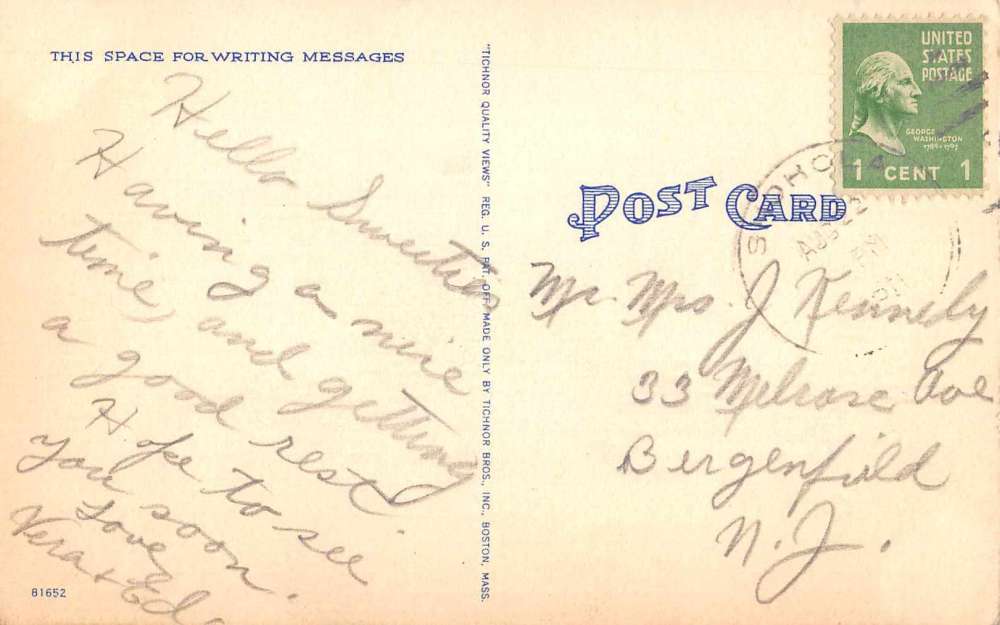 THIS SPACE FOR WRITING MESSAGES
Hello Sweeties
Having a nice
time, and getting
a good rest.
Hope to see
you soon.
Love
Vera + Ed
81652
"TICHNOR QUALITY VIEWS" REG. U. S. PAT. OFF. MADE ONLY BY TICHNOR BROS., INC., BOSTON, MASS.
UNITED
STATES
POSTAGE
GEORGE
WASHINGTON
1789-1797
1 CENT 1
POST CARD
AUG
PM
Mr. Mrs. J Kennedy
33 Melrose Ave
Bergenfield
N. J.